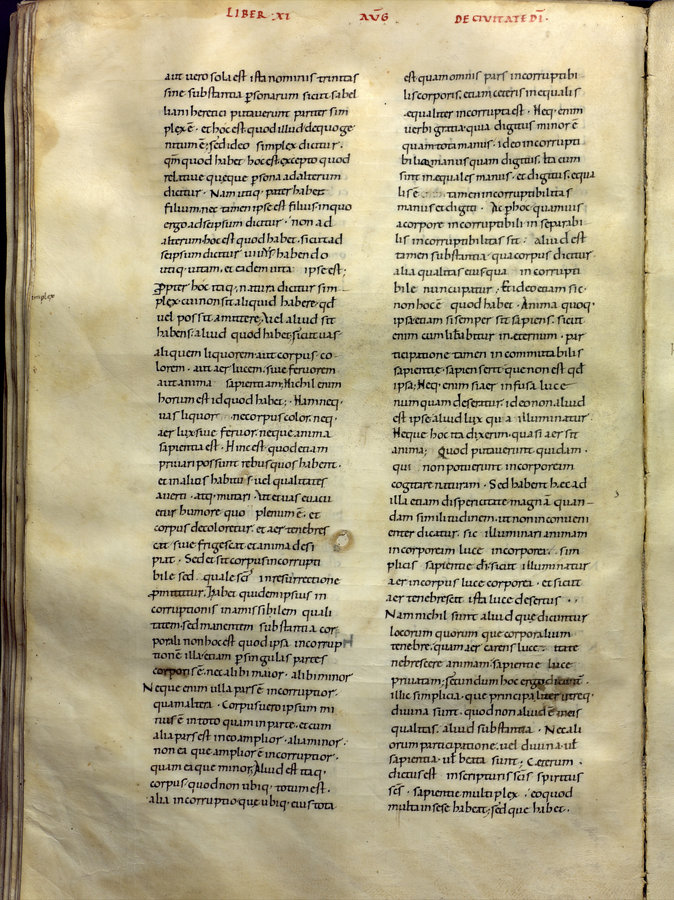 LIBER XI AUG DE CIVITATE DI.
aut vero sola est ista nominis trinitas
sine substantia personarum sicut sabel
liani heretici putaverunt
plex ē. et hoc est quod illud de quo ge
nitum ē; sed ideo simplex dicitur.
qm̄ quod habet hoc est, excepto quod
relative queque psona ad alteram
dicitur. Nam utiq. pater habet
filium, nec tamen ipse est filius. in quo
ergo ad seipsum dicitur. non ad
alterum. hoc est quod habet. sicut ad
seipsum dicitur vivus habendo
utiq. vitam, et eadem vita ipse est;
Propter hoc itaq. natura dicitur sim
plex cui non sit aliquid habere. qd̄
vel possit amittere, vel aliud sit
habens. aliud quod habet; sicut vas
aliquem liquorem. aut corpus co
lorem. aut aer lucem, sive fervorem
aut anima sapientiam; Nichil enim
horum est id quod habet; Nam neq.
vas liquor nec corpus color. neq.
aer lux sive fervor. neque anima
sapientia est. Hinc est quod etiam
privari possunt rebus quas habent.
et in alios habitus vel qualitates
averti. atq. mutari. Ut et vas evacu
etur humore quo plenum ē. et
corpus decoloretur. et aer tenebres
cat sive frigescat et anima desi
piat. Sed etsi sit corpus incorrupti
bile sed. quale scīs in resurrectione
pmittitur. habet quidem ipsius in
corruptionis inamissibilem quali
tatem. sed manentem substantia cor
porali non hoc est quod ipsa incorrup
tionē illa etiam p singulas partes
corporis ē. nec alibi maior. alibi minor
Neque enim ulla pars ē incorruptior.
quam altera. Corpus vero ipsum mi
nus ē in toto quam in parte. et cum
alia pars est in eo amplior. alia minor.
non ea que amplior ē incorruptior.
quam ea que minor. Aliud est itaq.
corpus. quod non ubiq. totum est.
alia incorruptio que ubiq. eius tota
simplex
est quam omnis pars incorruptibi
lis corporis. etiam ceteris inequalis
equaliter incorrupta est. Neq. enim
verbi gratia quia digitus minor ē
quam tota manus. ideo incorrupti
bilior manus quam digitus. Ita cum
sint inequales manus. et digitus. equa
lis ē tamen incorruptibilitas
manus et digiti. Ac p hoc quamvis
a corpore incorruptibili inseparabi
lis incorruptibilitas sit. aliud est
tamen substantia qua corpus dicitur.
alia qualitas eius qua incorrupti
bile nuncupatur; Et ideo etiam sic
non hoc ē quod habet. Anima quoq.
ipsa etiam si semper sit sapiens. sicut
erit cum liberabitur in eternum. par
ticipatione tamen incommutabilis
sapientie sapiens erit que non est qd̄
ipsa; Neq. enim si aer infusa luce
numquam desera tur. ideo non aliud
est ipse. aliud lux qua illuminatur.
Neque hoc ita dixerim. quasi aer sit
anima; Quod putaverunt quidam.
qui non potuerunt incorpoream
cogitare naturam. Sed habent hec ad
illa etiam disperitate magnā quan
dam similitudinem. ut non inconveni
enter dicatur. sic illuminari animam
incorpoream luce incorporea. sim
plicis sapientie di. sicut illuminatur
aer in corpus luce corporea. et sicut
aer tenebrescit ista luce desertus.
Nam nichil sunt aliud que dicuntur
locorum quorum que corporalium
tenebre. quam aer carens luce. ita te
nebrescere animam. sapientie luce
privatam; Secundum hoc ergo dicunt
illic simplicia. que principaliter
divina sunt. quod non aliud ē in eis
qualitas. aliud substantia. Nec ali
orum participatione. vel divina. vel
sapientia. vel beata sunt; Ceterum.
dictus est in scripturis scīs spiritus
scs. sapientie multiplex. eo quod
multa in sese habeat; sed que habet.